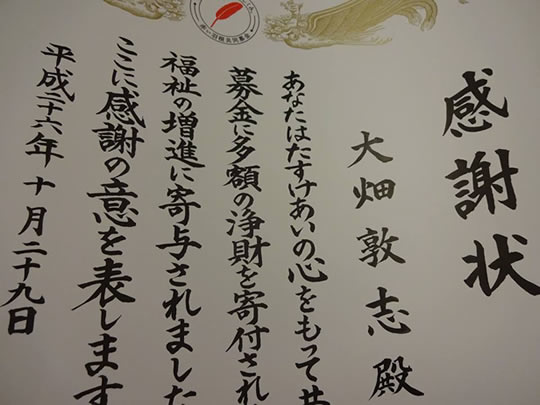 感謝状
大畑敦志殿
あなたはたすけあいの心をもって共
募金に多額の浄財を寄付され
福祉の増進に寄与されました
ここに感謝の意を表します
平成二十六年十月二十九日